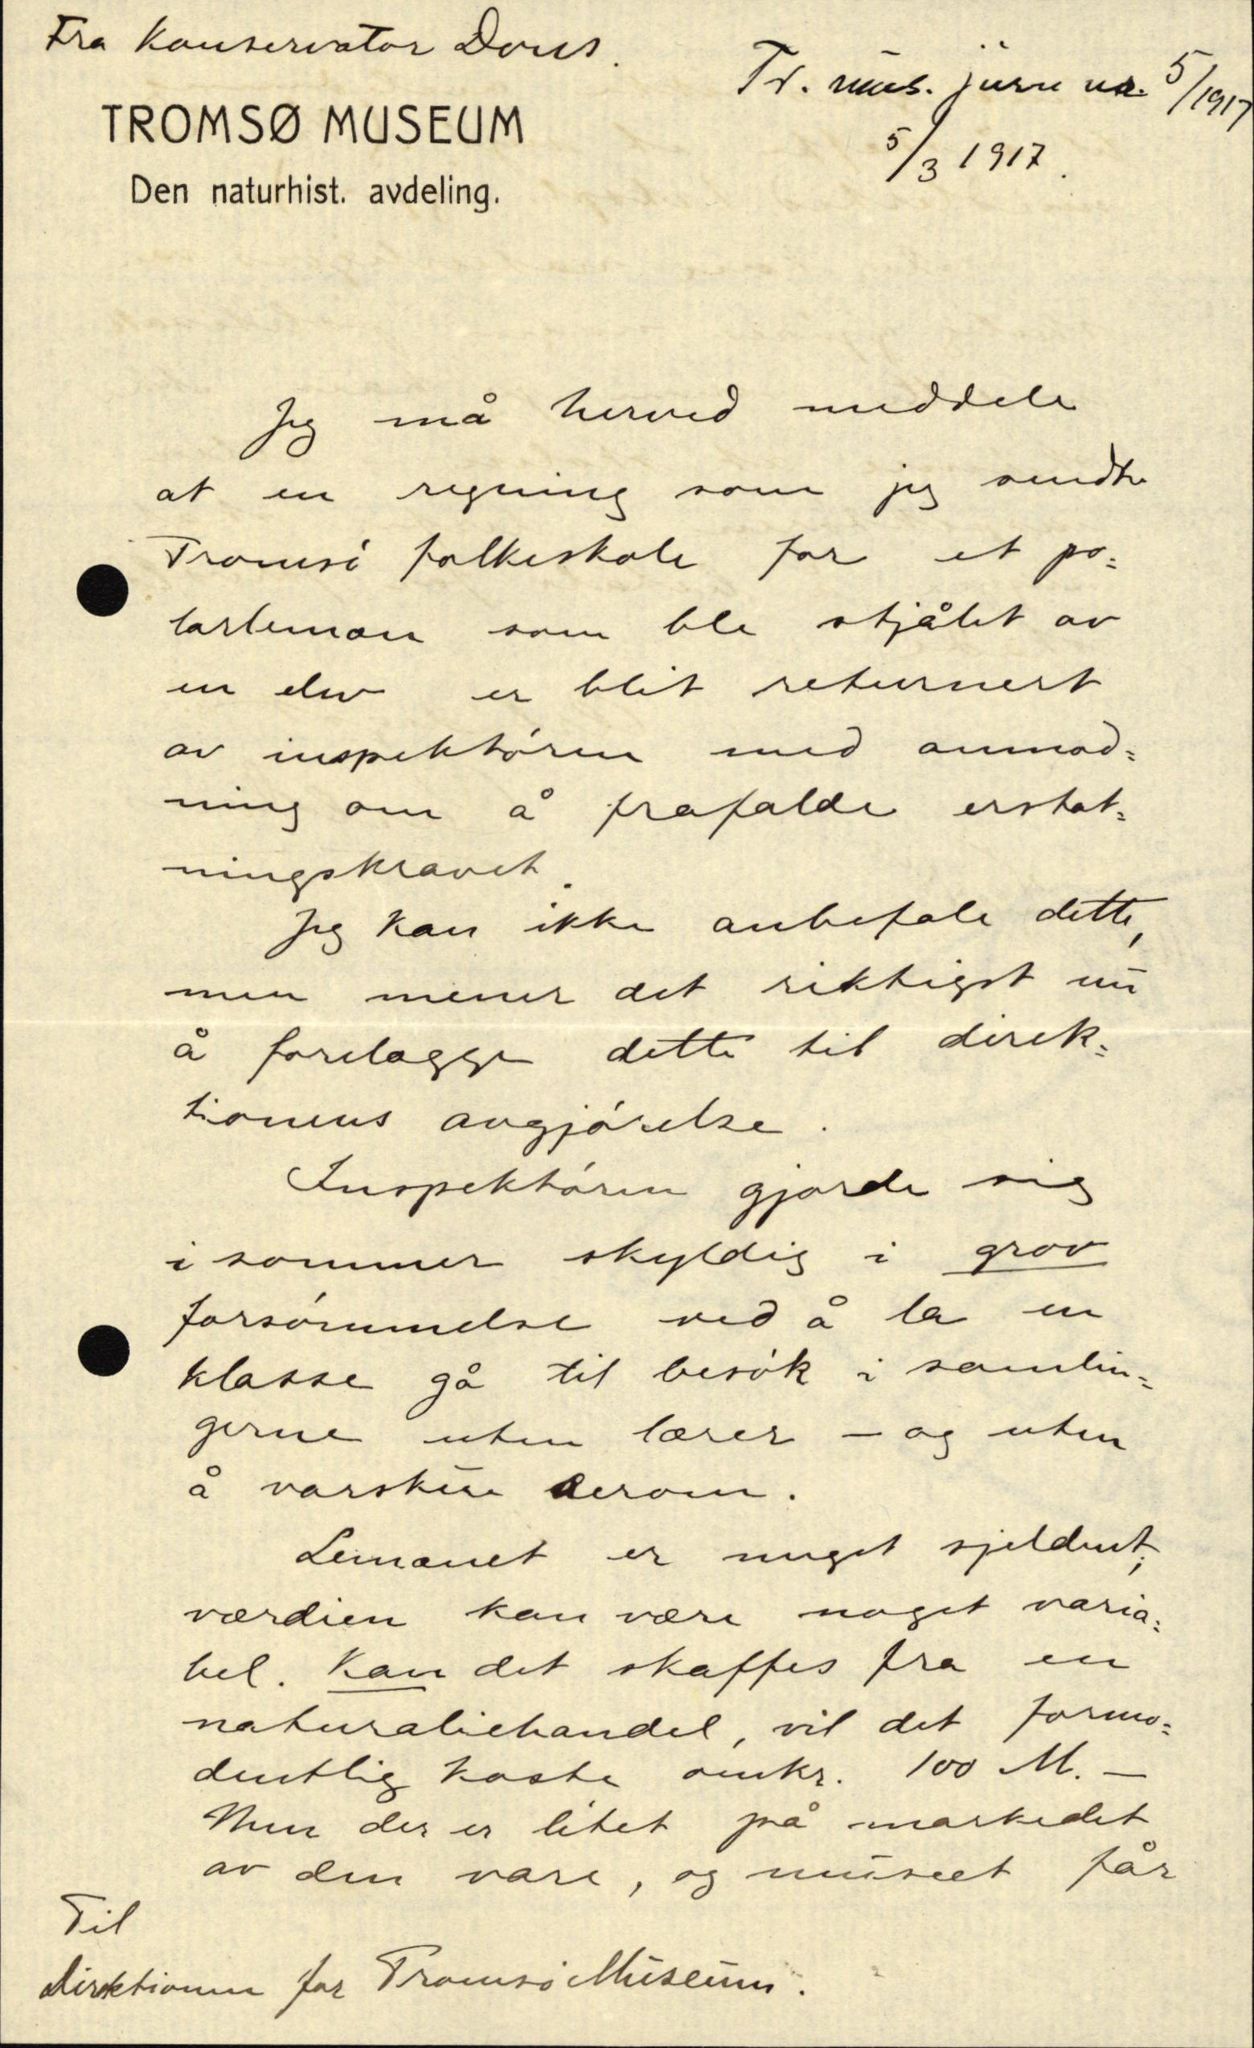 Fra Konservator Dons.
Tr. mus. journ nr. 5/1917
5/3 1917.
TROMSØ MUSEUM
Den naturhist. avdeling.
Jeg må herved meddele
at en regning som jeg sendte
Tromsö folkeskole for et po=
larleman som ble stjålet av
en elev er blit returnert
av inspektören med anmod=
ning om å frafalde erstat=
ningskravet.
Jeg kan ikke anbefale dette,
men mener det riktigst nu
å forelægge dette til direk=
tionens avgjörelse.
Inspektören gjorde sig
i sommer skyldig i grov
forsömmelse ved å la en
klasse gå til besök i samlin=
gerne uten lærer — og uten
å varsku derom.
Lemænet er meget sjeldent;
værdien kan være noget varia=
bel. Kan det skaffes fra en
naturaliehandel, vil det formo=
dentlig koste omkr. 100 M. —
Men der er litet på markedet
av den vare, og museet får
Til
Direktionen for Tromsö Museum.